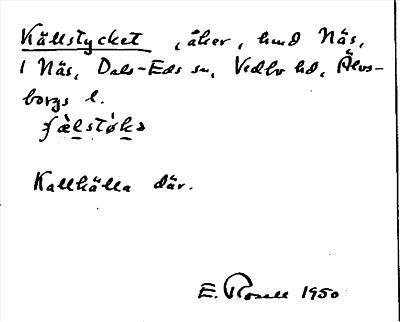 Källstycket, åker, hmd Näs,
1 Näs, Dals-Eds sn, Vedbo hd, Älvs-
borgs l.
Kallkälla där.
E. Rosell 1950